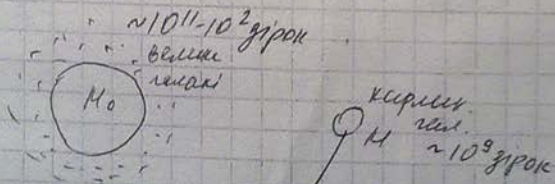 ~10¹¹-10² зірок
великі
галакі
M₀
карлик.
гал.
M
~10⁹ зірок